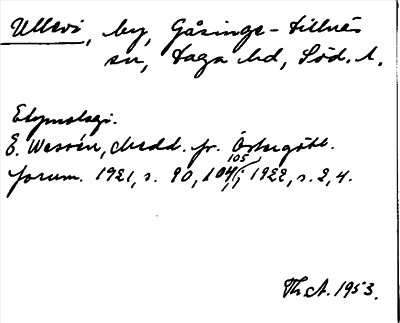 Ullevi, by, Gåsinge-Dillnäs
sn, Daga hd, Söd. l.
Etymologi.
E. Wessén, Medd. fr. Östergötl.
105
fornm. 1921, s. 90, 104/; 1922, s. 2, 4.
Th. A. 1953.